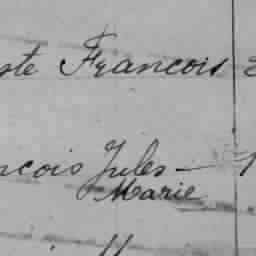 ste Francois
ncois Jules —
Marie